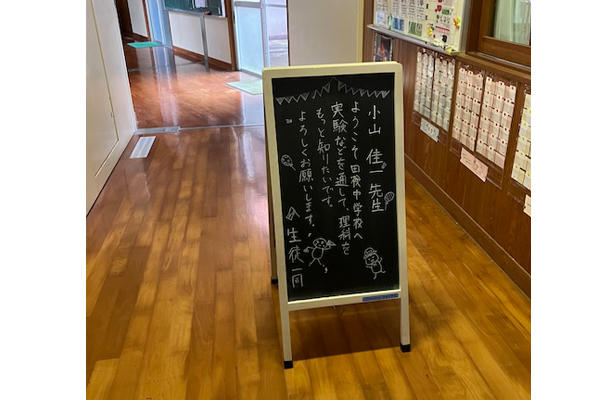 小山 佳一 先生
ようこそ 田検中学校へ
実験などを通して、理科を
もっと知りたいです。
よろしくお願いします。
生徒一同